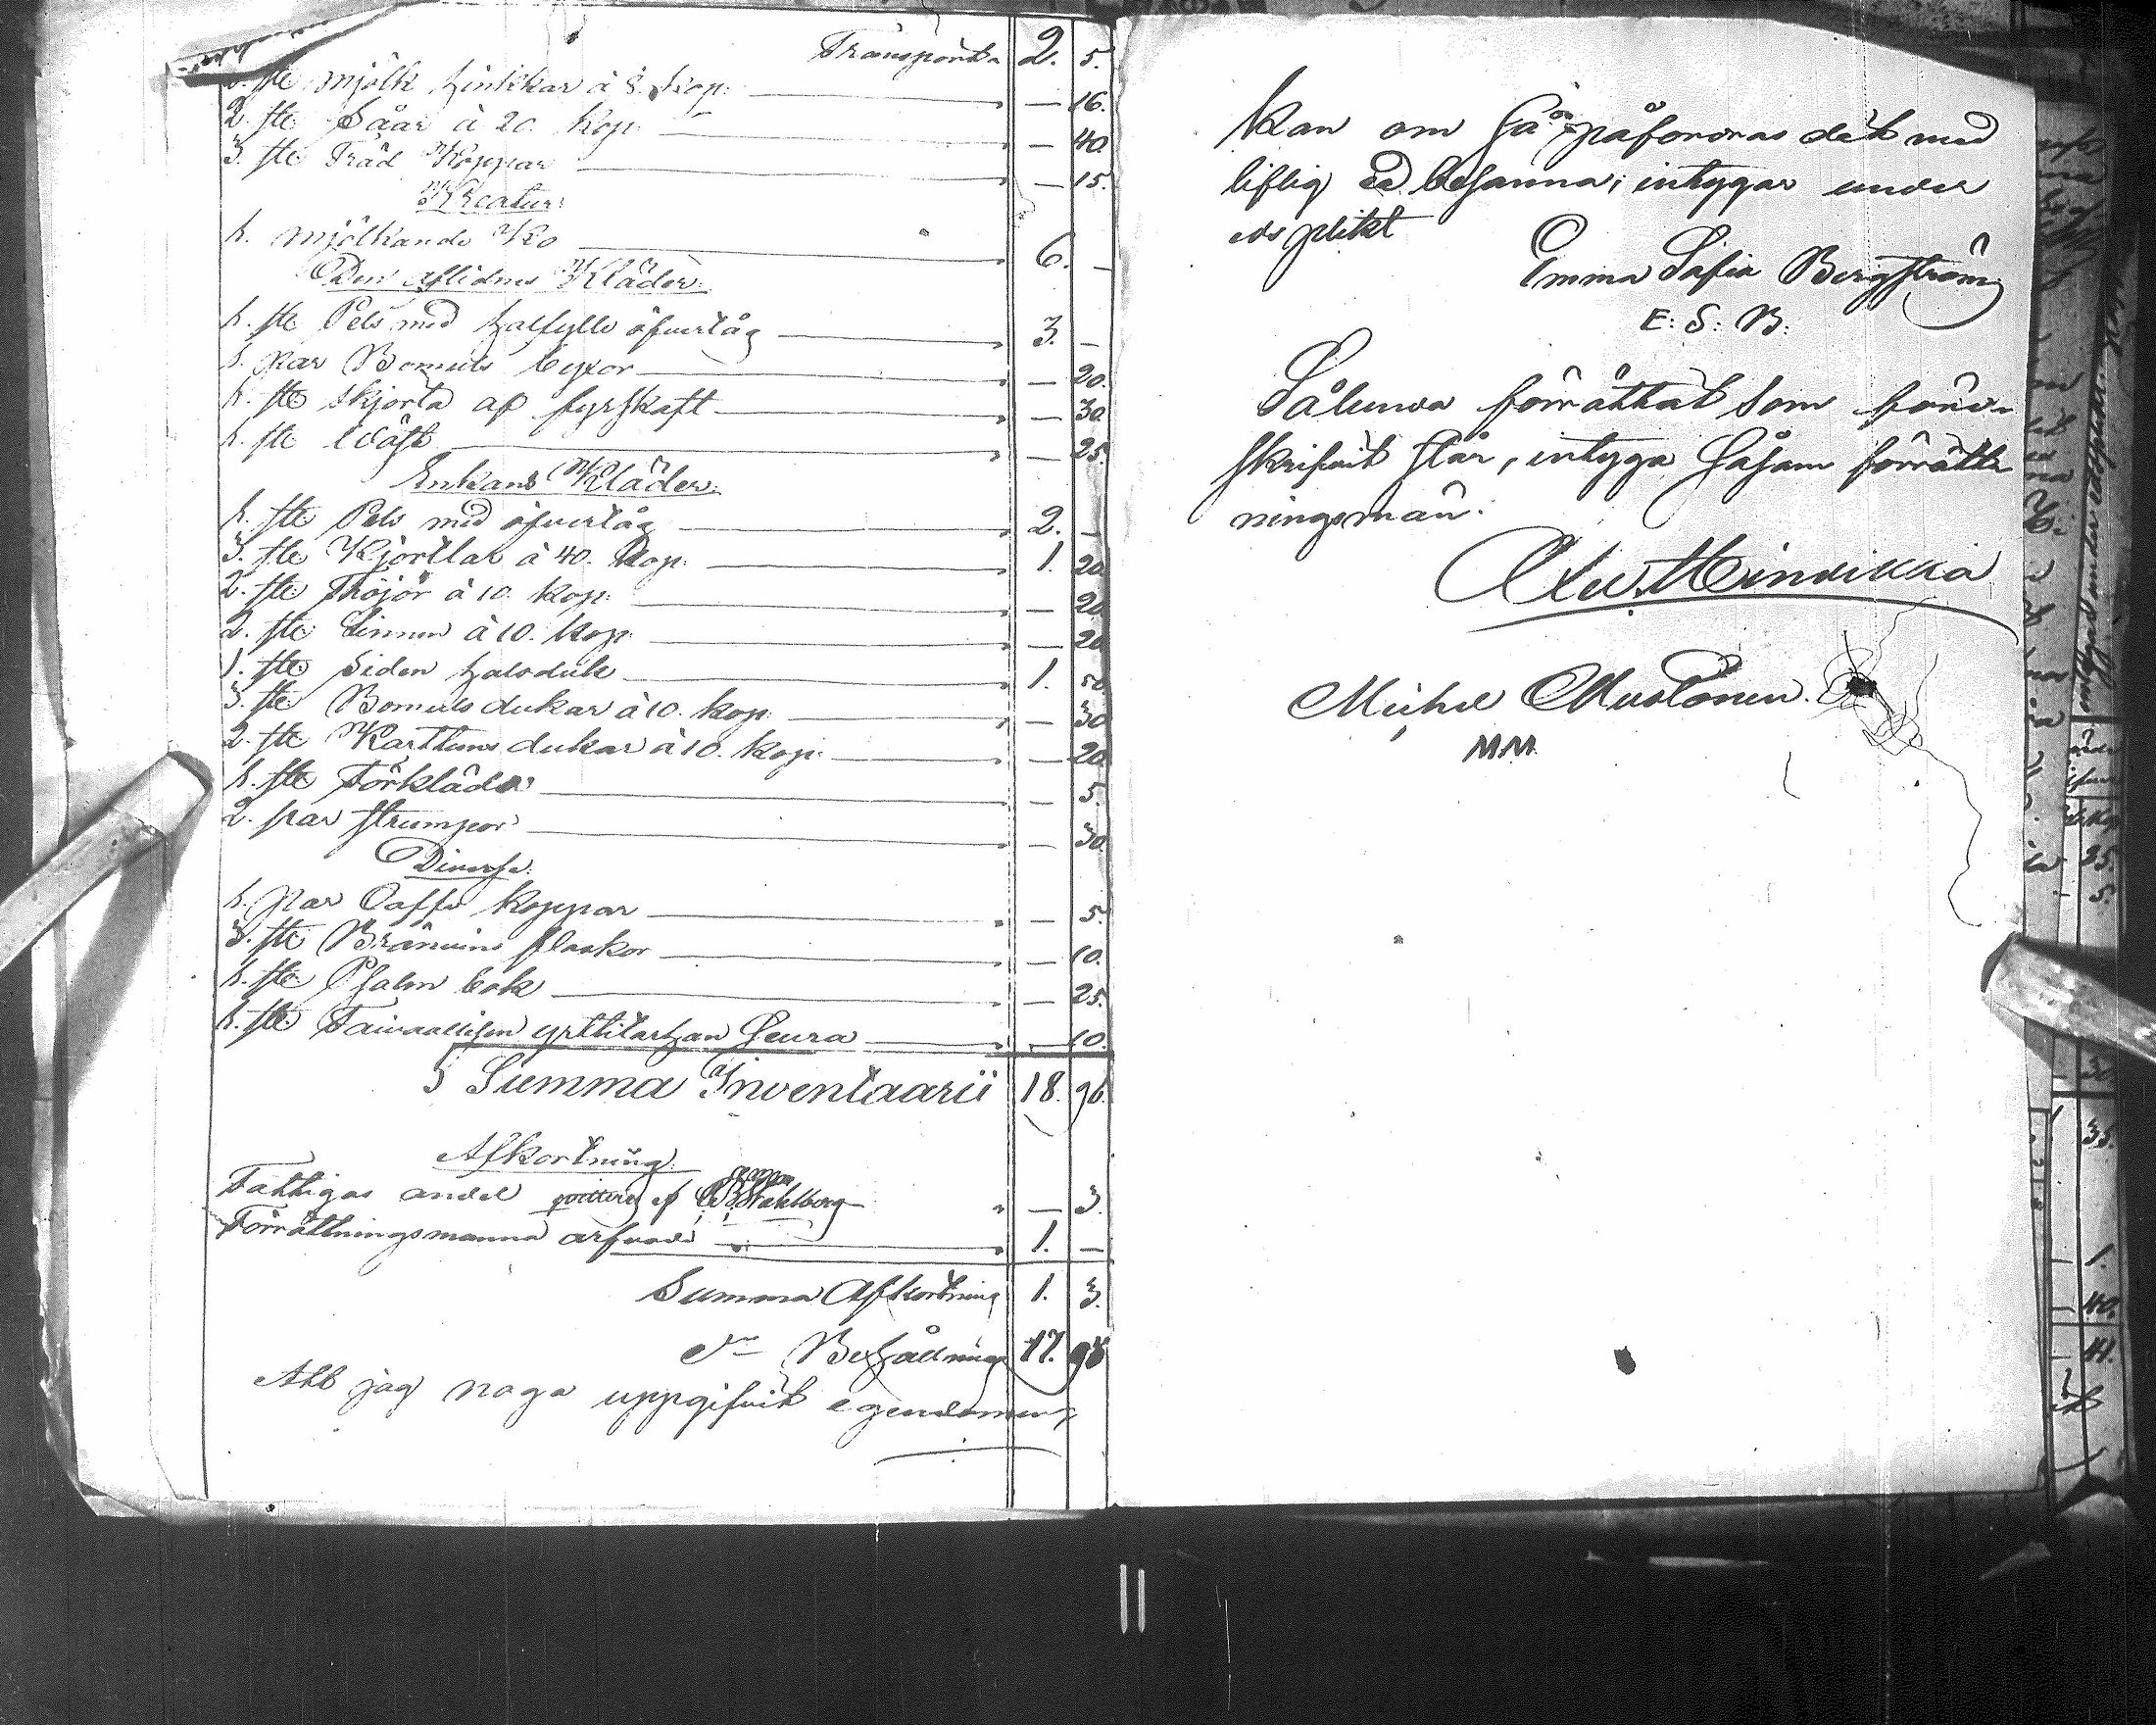 Transport 2. 5.
2. ste mjölk hinkkar à 8. kop: — 16.
2. ste Såar à 20. kop. — 40.
3. ste Träd Koppar — 15.
Kreatur:
1. mjölkande Ko 6. —
Den Aflidnes Kläder:
1. ste Pels med halfylle öfvertåg 3. —
1. par Bomuls byxor — 20.
1. ste skjorta af fyrskaft — 30.
1. ste Wäst — 25.
Enkans Kläder:
1. ste Pels med öfvertåg 2. —
3. ste Kjortlar à 40. kop. 1. 20.
2. ste Tröjor à 10. kop: — 20.
2. ste Linnen à 10. kop. — 20
1. ste Siden halsduk 1. 50.
3. ste Bomuls dukar à 10. kop: — 30
2. ste Karttuns dukar à 10. kop: — 20
1. ste Förkläde — 5.
2. par strumpor — 30.
Diverse:
1. par Caffe koppar — 5.
3. ste Bränvins flaskor — 10.
1. ste Psalm bok — 25.
1. ste Taivaallisen yrttitarhan Seura — 10.
Summa Inventaarii 18. 96.
Afkortning:
Fattigas andel af Stahlberg — 3.
Förrättningsmanna arfvode 1. —
Summa Afkortning 1. 3.
Behållning 17. 93
Att jag noga uppgifvit egendomen,
kan om så påfordras det med
liflig Ed besanna; intygar under
eds plikt
Emma Sofia Bergström
E: S: B:
Sålunda förrättat som före-
skrifvit står, intyga såsom förrätt-
ningsmän.
Michel Mustonen.
MM.